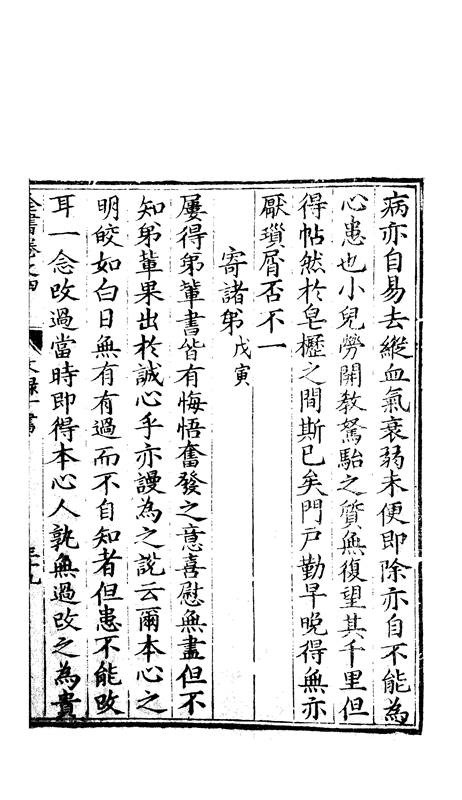 病亦自易去縱血氣衰弱未便即除亦自不能為
心患也小兒勞開教駑駘之質無復望其千里但
得帖然於皂櫪之間斯已矣門戶勤早晚得無亦
厭瑣屑否不一
寄諸弟戊寅
屢得弟輩書皆有悔悟奮發之意喜慰無盡但不
知弟輩果出於誠心乎亦謾為之說云爾本心之
明皎如白日無有有過而不自知者但患不能改
耳一念改過當時即得本心人孰無過改之為貴
全書卷之四
文錄一書
三十九